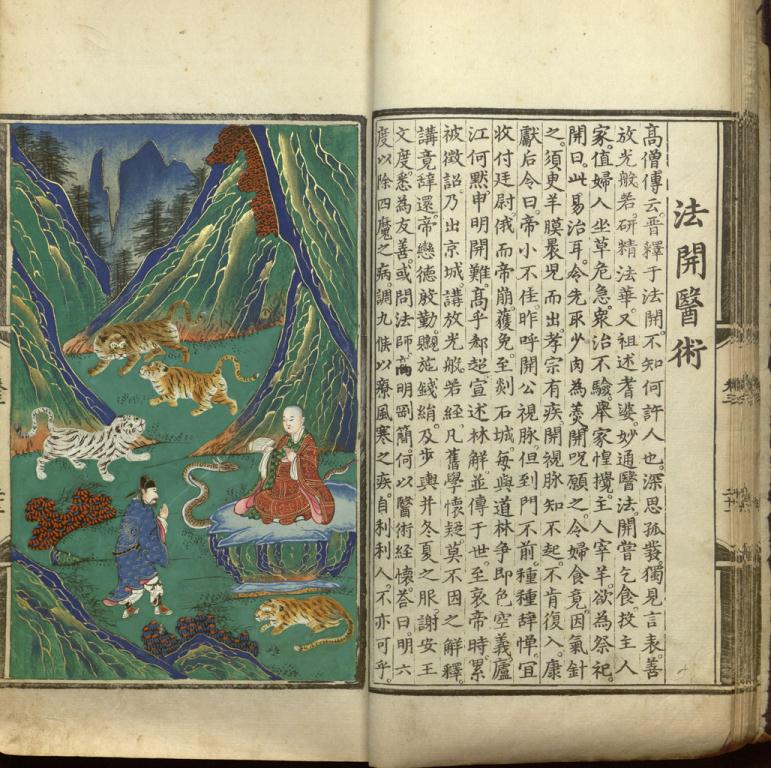 法開醫術
高僧傳云。晉釋于法開。不知何許人也。深思孤發。獨見言表。善
放光般若。研精法華。又祖述耆婆。妙通醫法。開嘗乞食。投主人
家。值婦人坐草危急。眾治不驗。舉家惶擾。主人宰羊。欲為祭祀。
開曰。此易治耳。令先取少肉為羹。開呪願之。令婦食竟。因氣針
之。須臾羊膜裹兒而出。孝宗有疾。開視脉知不起。不肯復入。康
獻后令曰。帝小不佳。昨呼開公視脉。但到門不前。種種辭憚。宜
收付廷尉。俄而帝崩。獲免。至剡石城。每與道林爭即色空義。廬
江何默申明開難。高平郗超宣述林解。並傳于世。至哀帝時。累
被徵詔。乃出京城。講放光般若經。凡舊學懷疑。莫不因之解釋。
講竟辭還。帝戀德殷勤。䞋施錢絹。及步輿并冬夏之服。謝安王
文度。悉為友善。或問法師。高明剛簡。何以醫術經懷。荅曰。明六
度以除四魔之病。調九候以療風寒之疾。自利利人。不亦可乎。